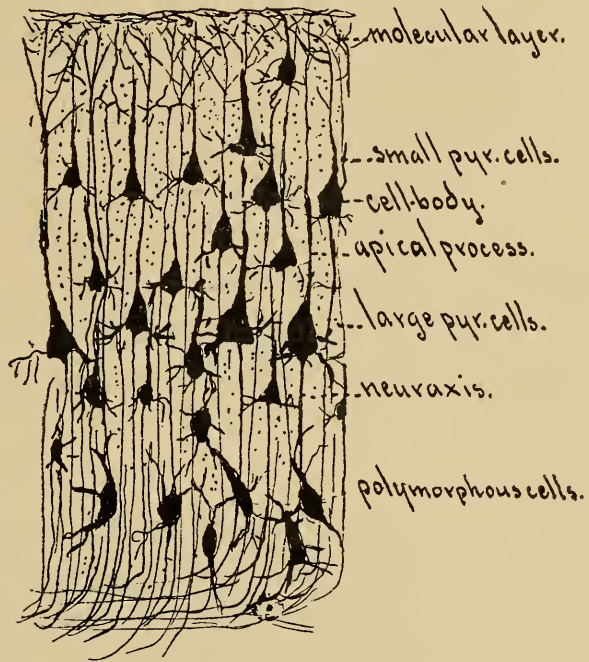 molecular layer.
small pyr. cells.
cell-body.
apical process.
large pyr. cells.
neuraxis.
polymorphous cells.